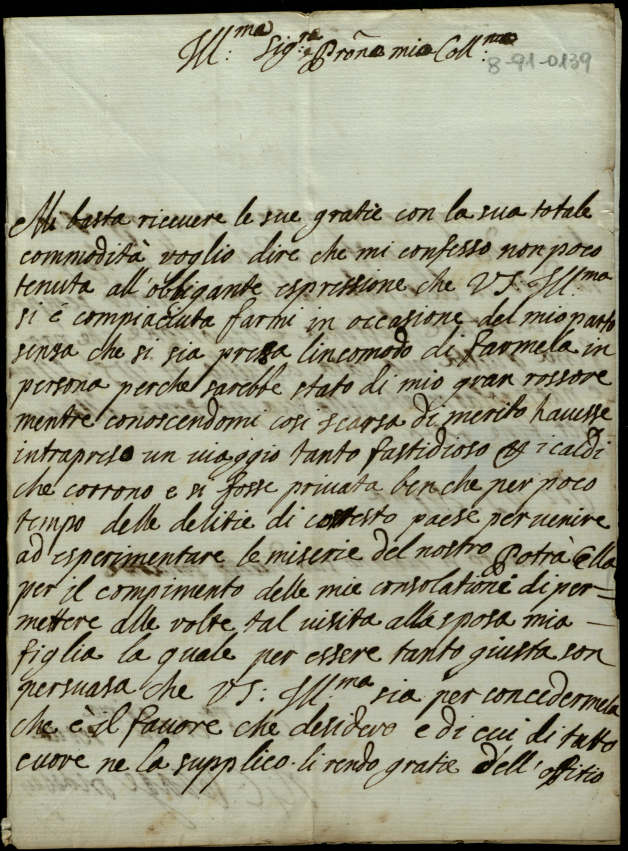 Ill:ma Sig:ra e Proña mia Coll:ma
8-91-0139
Mi basta riceuere le sue gratie con la sua totale
commodità voglio dire che mi confesso non poco
tenuta all'obbligante espressione che VS. Ill:ma
si è compiaciuta farmi in occasione del mio parto
senza che si sia presa l'incomodo di farmela in
persona perche sarebbe stato di mio gran rossore
mentre conoscendomi così scarsa di merito hauesse
intrapreso un uiaggio tanto fastidioso i caldi
che corrono e si fosse priuata ben che per poco
tempo delle delitie di cotesto paese per uenire
ad esperimentare le miserie del nostro Potrà Ella
per il compimento delle mie consolationi di per=
mettere alle uolte tal uisita alla sposa mia
figlia la quale per essere tanto giusta son
persuasa che VS: Ill:ma sia per concedermela
che è il fauore che desidero e di cui di tutto
cuore ne la supplico li rendo gratie dell' offitio